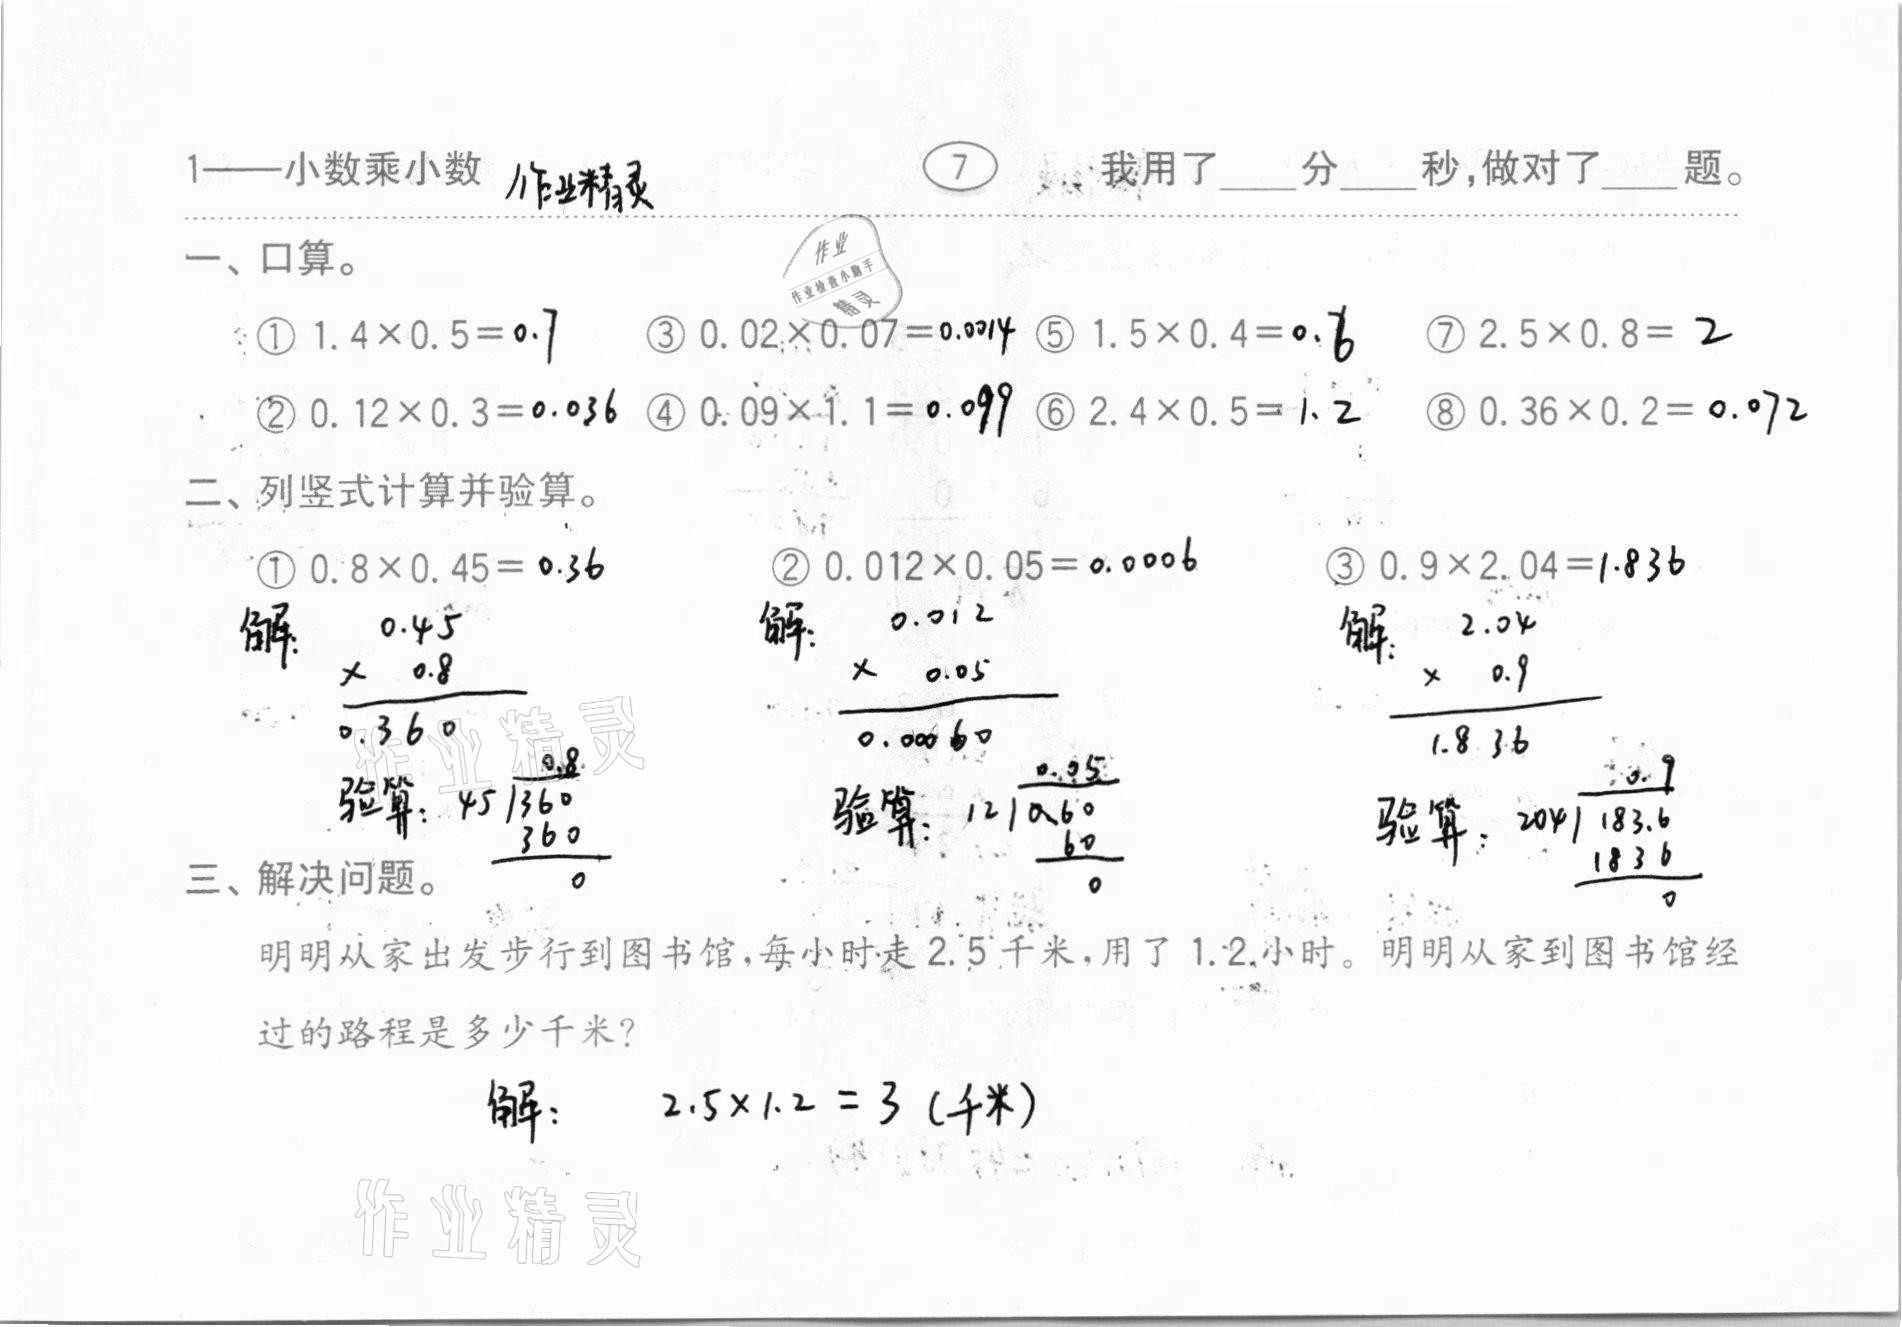 1——小数乘小数 作业精灵 7 我用了____分____秒,做对了____题。
作业
作业检查小助手
精灵
一、口算。
① 1.4×0.5=0.7 ③ 0.02×0.07=0.0014 ⑤ 1.5×0.4=0.6 ⑦ 2.5×0.8=2
② 0.12×0.3=0.036 ④ 0.09×1.1=0.099 ⑥ 2.4×0.5=1.2 ⑧ 0.36×0.2=0.072
二、列竖式计算并验算。
① 0.8×0.45=0.36 ② 0.012×0.05=0.0006 ③ 0.9×2.04=1.836
解: 0.45 解: 0.012 解: 2.04
× 0.8 × 0.05 × 0.9
0.360 0.00060 1.836
作业精灵
0.8 0.05 0.9
验算: 45)360 验算: 12)0.60 验算: 204)183.6
360 60 1836
0 0 0
三、解决问题。
明明从家出发步行到图书馆,每小时走2.5千米,用了1.2小时。明明从家到图书馆经
过的路程是多少千米?
解: 2.5×1.2=3(千米)
作业精灵